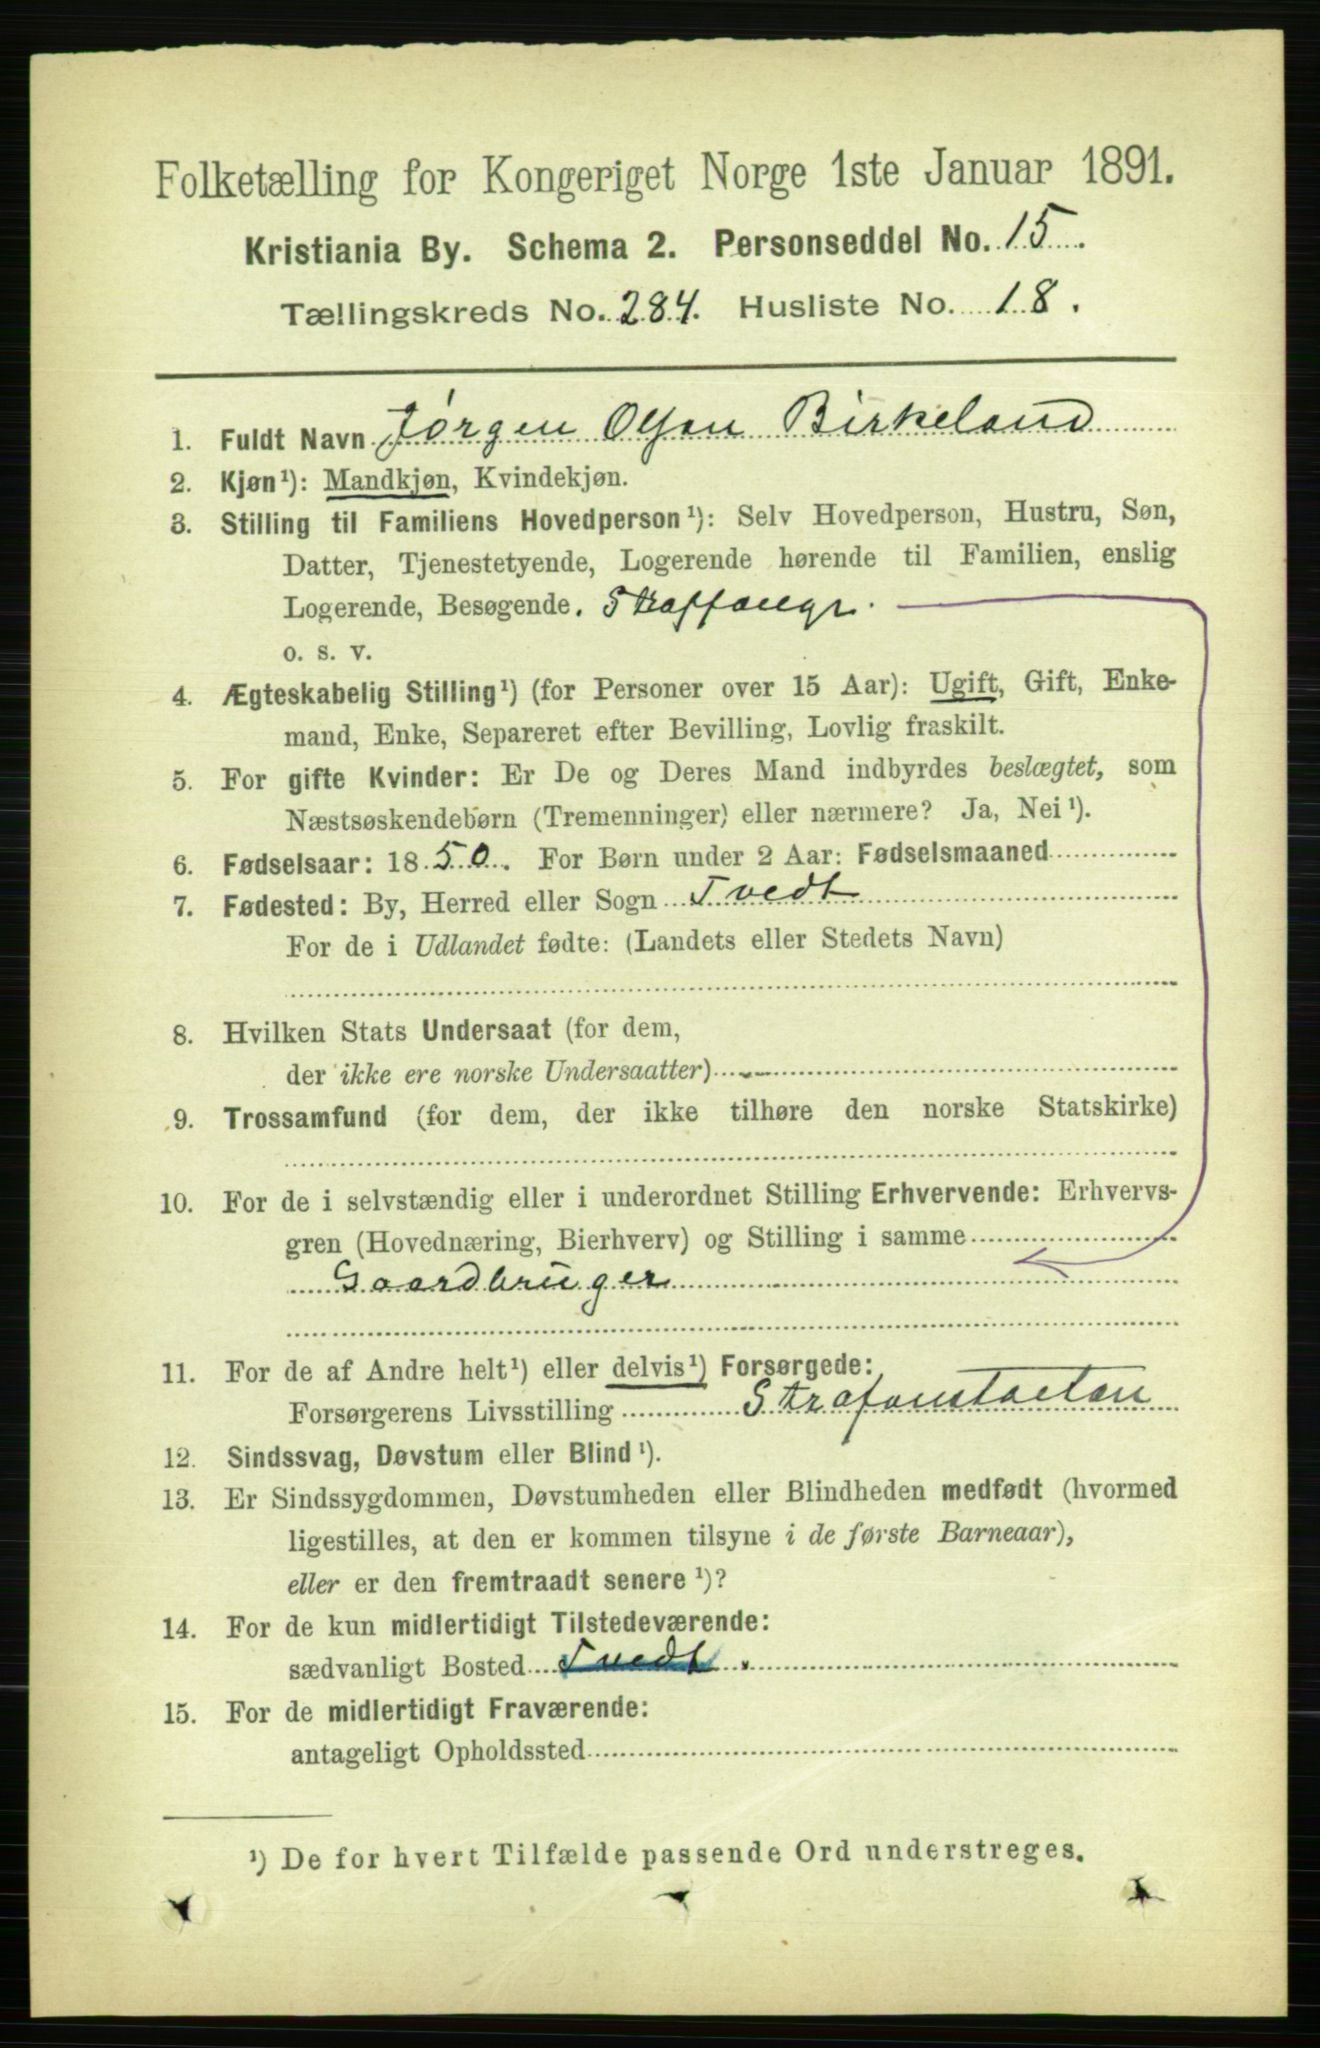 Folketælling for Kongeriget Norge 1ste Januar 1891.
Kristiania By. Schema 2. Personseddel No. 15.
Tællingskreds No. 284. Husliste No. 18.
1. Fuldt Navn Jørgen Olsen Birkeland
2. Kjøn¹): Mandkjøn, Kvindekjøn.
3. Stilling til Familiens Hovedperson¹): Selv Hovedperson, Hustru, Søn,
Datter, Tjenestetyende, Logerende hørende til Familien, enslig
Logerende, Besøgende. Straffange.
o. s. v.
4. Ægteskabelig Stilling¹) (for Personer over 15 Aar): Ugift, Gift, Enke-
mand, Enke, Separeret efter Bevilling, Lovlig fraskilt.
5. For gifte Kvinder: Er De og Deres Mand indbyrdes beslægtet, som
Næstsøskendebørn (Tremenninger) eller nærmere? Ja, Nei¹).
6. Fødselsaar: 1850. For Børn under 2 Aar: Fødselsmaaned
7. Fødested: By, Herred eller Sogn Tvedt
For de i Udlandet fødte: (Landets eller Stedets Navn)
8. Hvilken Stats Undersaat (for dem,
der ikke ere norske Undersaatter)
9. Trossamfund (for dem, der ikke tilhøre den norske Statskirke)
10. For de i selvstændig eller i underordnet Stilling Erhvervende: Erhvervs-
gren (Hovednæring, Bierhverv) og Stilling i samme
Gaardbruger
11. For de af Andre helt¹) eller delvis¹) Forsørgede:
Forsørgerens Livsstilling Strafanstalten
12. Sindssvag, Døvstum eller Blind¹).
13. Er Sindssygdommen, Døvstumheden eller Blindheden medfødt (hvormed
ligestilles, at den er kommen tilsyne i de første Barneaar),
eller er den fremtraadt senere¹)?
14. For de kun midlertidigt Tilstedeværende:
sædvanligt Bosted Tvedt.
15. For de midlertidigt Fraværende:
antageligt Opholdssted
¹) De for hvert Tilfælde passende Ord understreges.